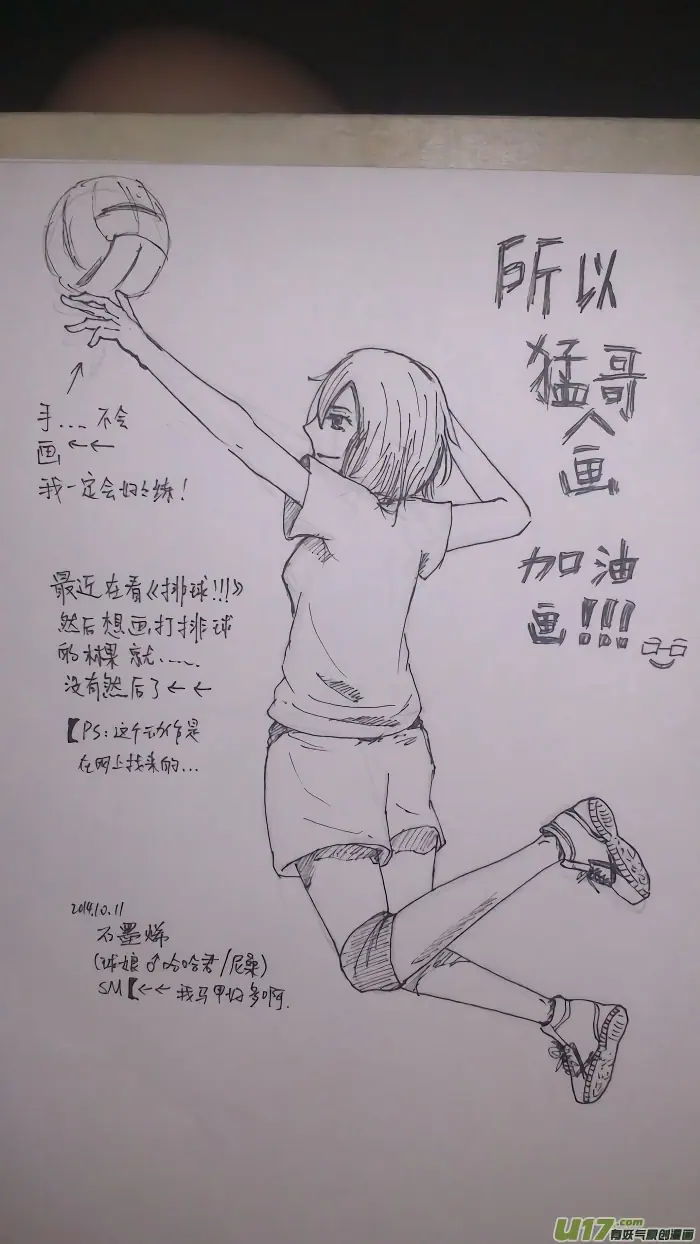 所以
猛哥
画
加油
画!!!
手.... 不会
画←←
我一定会好好练!
最近在看《排球!!!》
然后想画打排球
的林果就......
没有然后了←←
【PS:这个动作是
在网上找来的...
2014.10.11
石墨烯
(球娘♂哈哈君/尼桑)
SM【←←我马甲好多啊.
U17.com
有妖气原创漫画